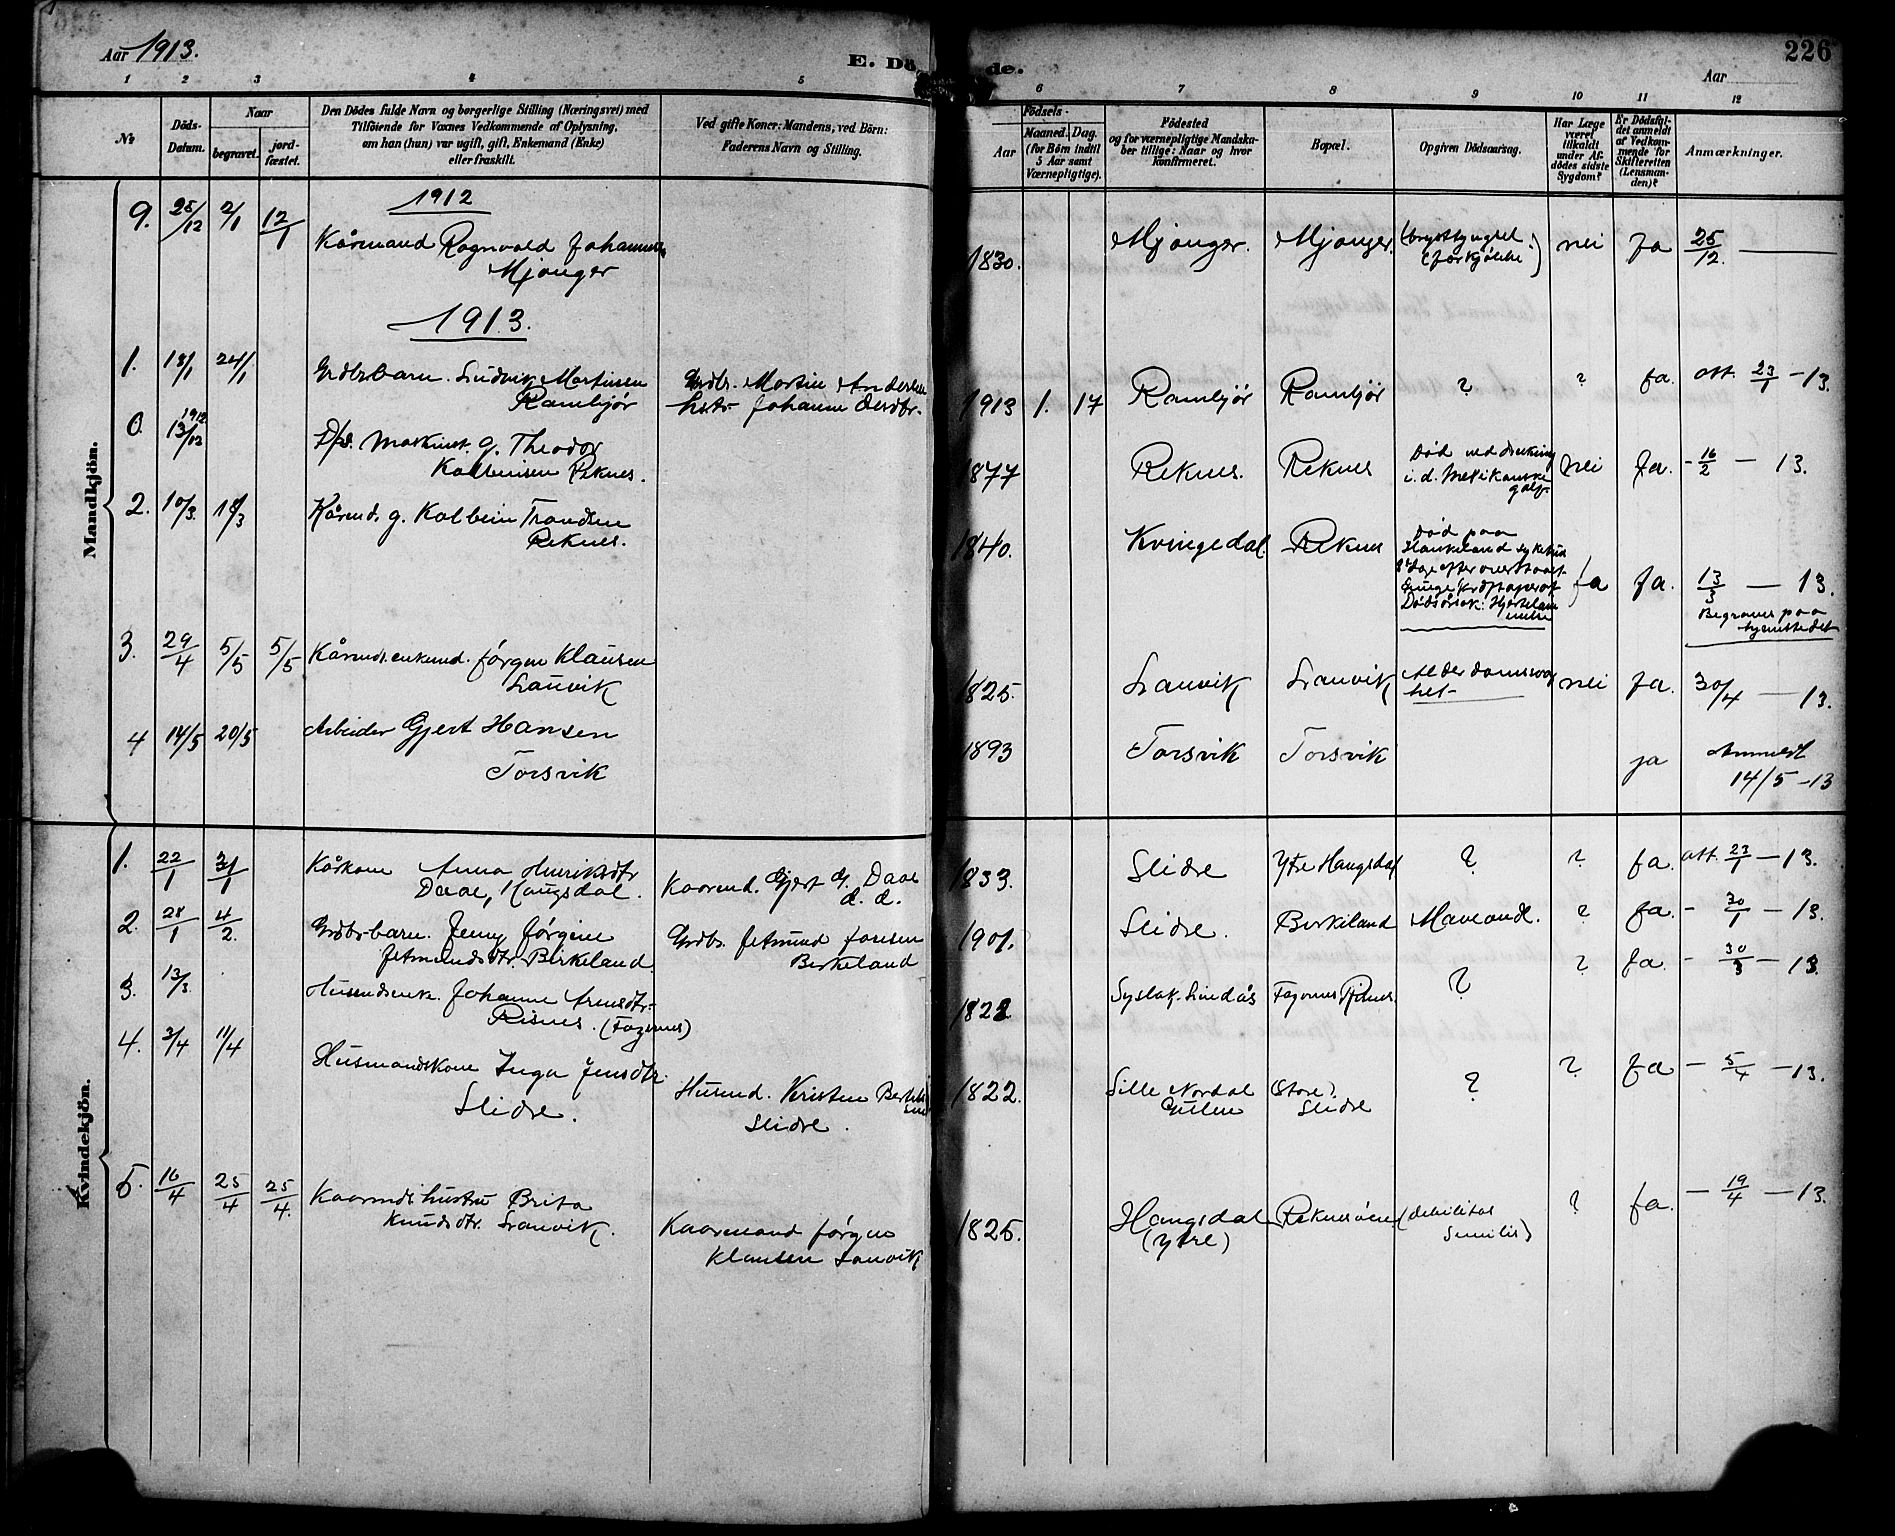 Aar 1913.
E. Dö
de.
Aar
226
1 2 3 4 5 6 7 8 9 10 11 12
No
Döds-
Datum.
Naar
begravet.
jord-
fæstet.
Den Dödes fulde Navn og borgerlige Stilling (Næringsvei) med
Tilföiende for Voxnes Vedkommende af Oplysning,
om han (hun) var ugift, gift, Enkemand (Enke)
eller fraskilt.
Ved gifte Koner: Mandens, ved Börn:
Faderens Navn og Stilling.
Födsels-
Aar
Maaned. Dag.
(for Börn indtil
5 Aar samt
Værnepligtige).
Födested
og for værnepligtige Mandska-
ber tillige: Naar og hvor
konfirmeret.
Bopæl.
Opgiven Dödsaarsag.
Har Læge
været
tilkaldt
under Af-
dödes sidste
Sygdom?
Er Dödsfal-
det anmeldt
af Vedkom-
mende for
Skifteretten
(Lensman-
den)?
Anmærkninger.
Mandkjön.
1912
9. 25/12 2/1 12/1 Kårmand Ragnvald Johannes
Mjanger
1830. Mjanger. Mjanger. nei Ja 25/12.
1913.
1. 18/1 24/1 Grdbrbarn. Ludvik Martinsen
Rambjør
Grdbr. Martin Andersen
hstr Johanne
1913 1. 17 Rambjør Rambjør ? ? Ja. att. 23/1 - 13.
0. 1912 13/12 Maskinist. g. Theodor
Kolbeinsen Reknes.
1877 Reknes. Reknes Død ved drukning
i. d. Mexikanske
golf nei Ja. - 16/2 - 13.
2. 10/3. 18/3 Kårmd. g. Kolbein Trondsen
Reknes.
1840. Kvingedal. Reknes Død paa
Haukeland sykehus
Ja Ja. 13/3 - 13.
Begraves paa
3. 29/4 5/5 5/5 Kårmds.enkemd. Jørgen Klausen
Lauvik
1825. Lauvik Lauvik Alderdomssvag
het nei Ja. 30/4 - 13.
4 14/5 20/5 Arbeider Gjert Hansen
Torsvik
1893 Torsvik Torsvik ja Anmeldt
14/5 - 13
Kvindekjön.
1. 22/1 31/1 Kårkone Anna Henriksdtr
Daae, Haugsdal.
Kaarmd. Gjert G. Daae
d. d.
1833. Slidre Ytre Haugsdal ? ? Ja. att. 23/1 - 13.
2. 28/1 4/2. Grdbrbarn. Jenny Jørgine
Jetmundsdtr. Birkeland.
Grdbr. Jetmund Jonsen
Birkeland
1901. Slidre. Birkeland Maveond. ? Ja. - 30/1 - 13.
3. 13/3. Husmdsenk. Johanne Arnesdtr.
Risnes. (Fagernes)
1822 Syslak. Lindås Fagernes Risnes. ? ? Ja. - 30/3 - 13
4. 3/4 11/4 Husmandskone Inga Jensdtr.
Slidre.
Husmd. Kristen Bertel
sen
Slidre.
1822. Sille Nordal
Gulen (Store)
Slidre ? ? Ja - 5/4 - 13.
5. 16/4 25/4 25/4. Kaarmds hustru Brita
Knudsdtr. Lauvik.
Kaarmand Jørgen
Klausen Lauvik
1825. Haugsdal
(ytre) Reknesøen (debilitas
senilis) ? Ja. - 19/4 - 13.